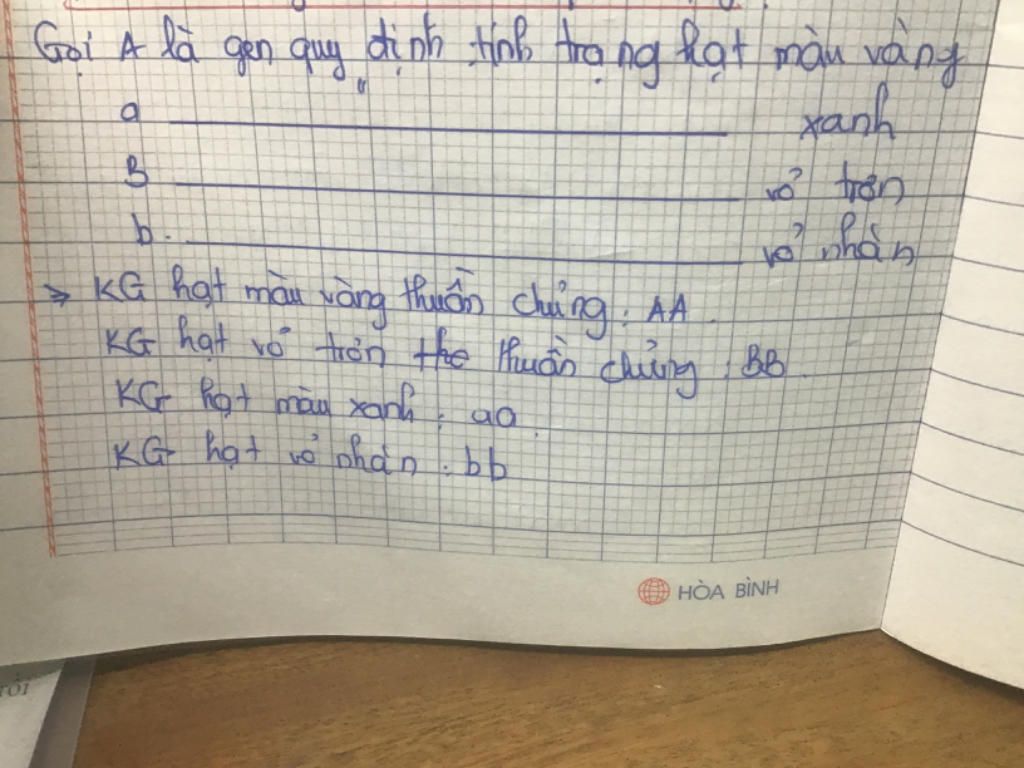 Gọi A là gen quy định tính trạng hạt màu vàng
a ———————— xanh
B ———————— vỏ trơn
b ———————— vỏ nhàn
=> KG hạt màu vàng thuần chủng: AA.
KG hạt vỏ trơn the thuần chủng: BB.
KG hạt màu xanh: aa.
KG hạt vỏ nhàn: bb
HÒA BÌNH